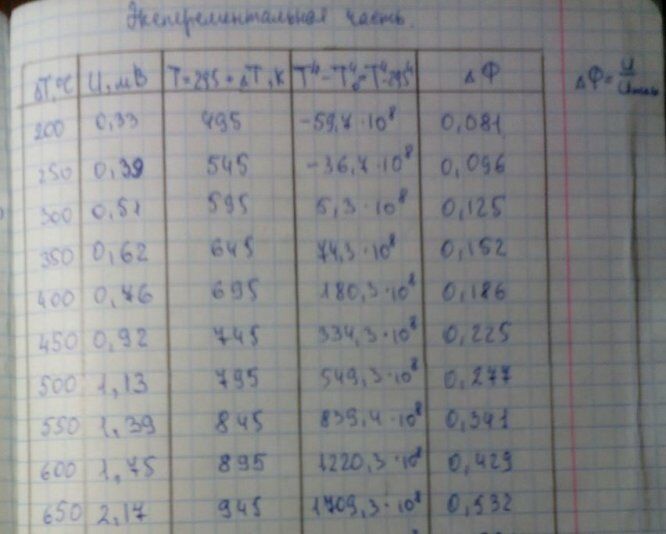 Эксперементальная часть.
ΔT,°C U,мВ T=295+ΔT,К T⁴-T₀⁴=T⁴-295⁴ ΔФ ΔФ=U/Uмах
200 0,33 495 -59,7·10⁸ 0,081
250 0,39 545 -36,7·10⁸ 0,096
300 0,51 595 5,3·10⁸ 0,125
350 0,62 645 74,3·10⁸ 0,152
400 0,76 695 180,3·10⁸ 0,186
450 0,92 745 334,3·10⁸ 0,225
500 1,13 795 549,3·10⁸ 0,277
550 1,39 845 839,4·10⁸ 0,341
600 1,75 895 1220,3·10⁸ 0,429
650 2,17 945 1709,3·10⁸ 0,532